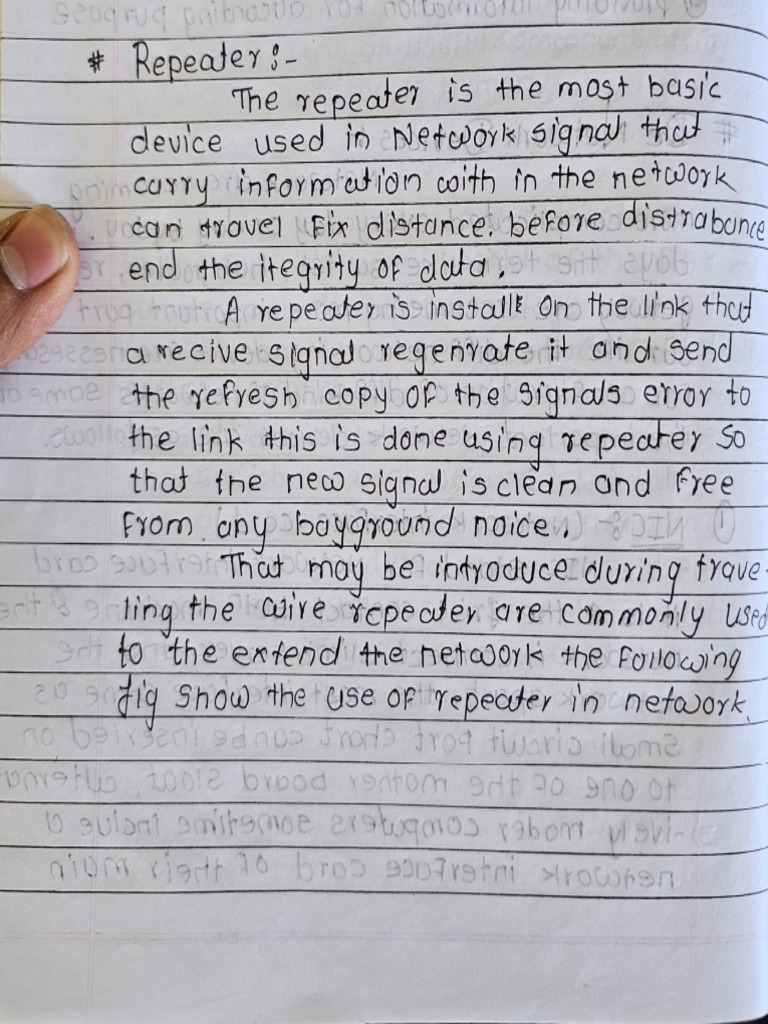 # Repeater :-
The repeater is the most basic
device used in Network signal that
carry information with in the network
can travel Fix distance. before distrabance
end the itegrity of data.
A repeater is install on the link that
a recive signal regenrate it and send
the refresh copy of the signals error to
the link this is done using repeater so
that the new signal is clean and free
from any bayground noice.
That may be introduce during trave-
ling the wire repeater are commonly used
to the extend the network the following
fig show the use of repeater in network.